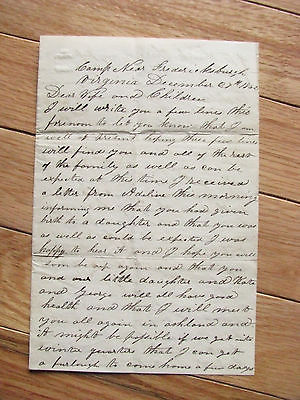 Camp Near Fredericksburgh
Virginia December
Dear Wife and Children
I will write you a few lines this
forenoon to let you know that I am
well at present hoping these few lines
will find you and all of the rest
of the family as well as can be
expected at this time I received
a letter from this morning
informing me that you had given
birth to a daughter and that you was
as well as could be expected I was
happy to hear it and I hope you will
soon be up again and that you
and our little daughter and Kate
and George will all have good
health and that I will meet
you all again in ashland and
it might be possible if we get into
winter quarters that I can get
a furlough to come home a few days